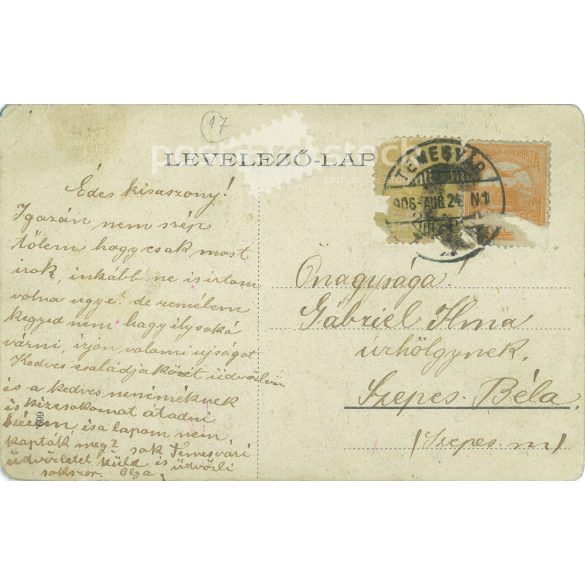 17
LEVELEZŐ-LAP
TEMESVÁR
906 AUG 24 N1
Édes kisaszony!
Igazán nem szép
tőlem hogy csak most
irok, inkább ne is irtam
volna ugye? de remélem
kegyed nem hagy ily soká
várni, irjon valami ujságot
Kedves családja körét üdvözlöm
és a kedves nénémnek
és kézcsokomat átadni
isa lapom nem
kapták meg? sok Temesvári
üdvözletet küld és üdvözli
sokszor
Önagysága.
Gabriel Ilma
úrhölgynek.
Szepes-Béla
(Szepes. m)